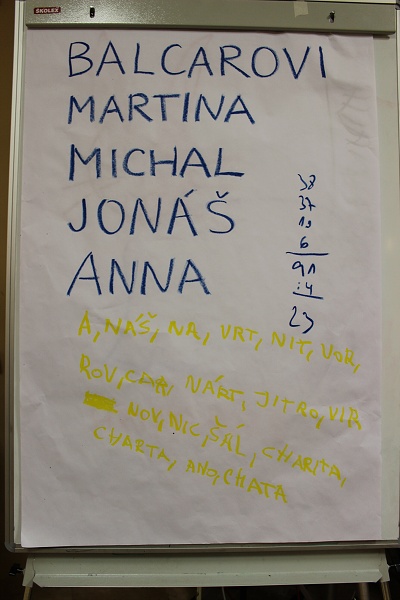 ŠKOLEX
BALCAROVI
MARTINA
MICHAL
JONÁŠ
ANNA
38
37
10
6
91
:4
23
A, NÁŠ, NA, VRT, NIT, VOR,
ROV, NÁRT, JITRO, VIR
NOV, NIC, ŠÁL, CHARITA,
CHARTA, ANO, CHATA